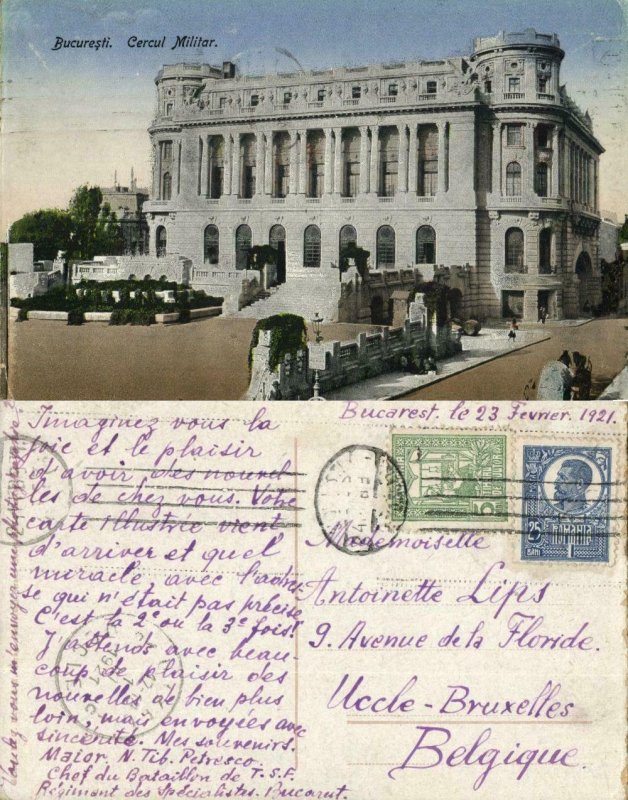 București. Cercul Militar.
Bucarest. le 23 Février. 1921.
Imaginez vous la
joie et le plaisir
d'avoir des nouvel
les de chez vous. Votre
carte illustrée vient
d'arriver et quel
miracle, avec l'adres
se qui n'était pas précise
C'est la 2e ou la 3e fois!
J'attends avec beau-
coup de plaisir des
nouvelles de bien plus
loin, mais envoyées avec
sincerité. Mes souvenirs.
Major. N. Tib. Petresco.
Chef du Bataillon de T.S.F.
Régiment des Spécialistes. Bucarest.
Voulez vous m'envoyer une
25
BANI
ROMANIA
1
Mademoiselle
Antoinette Lips
9. Avenue de la Floride.
Uccle-Bruxelles
Belgique.